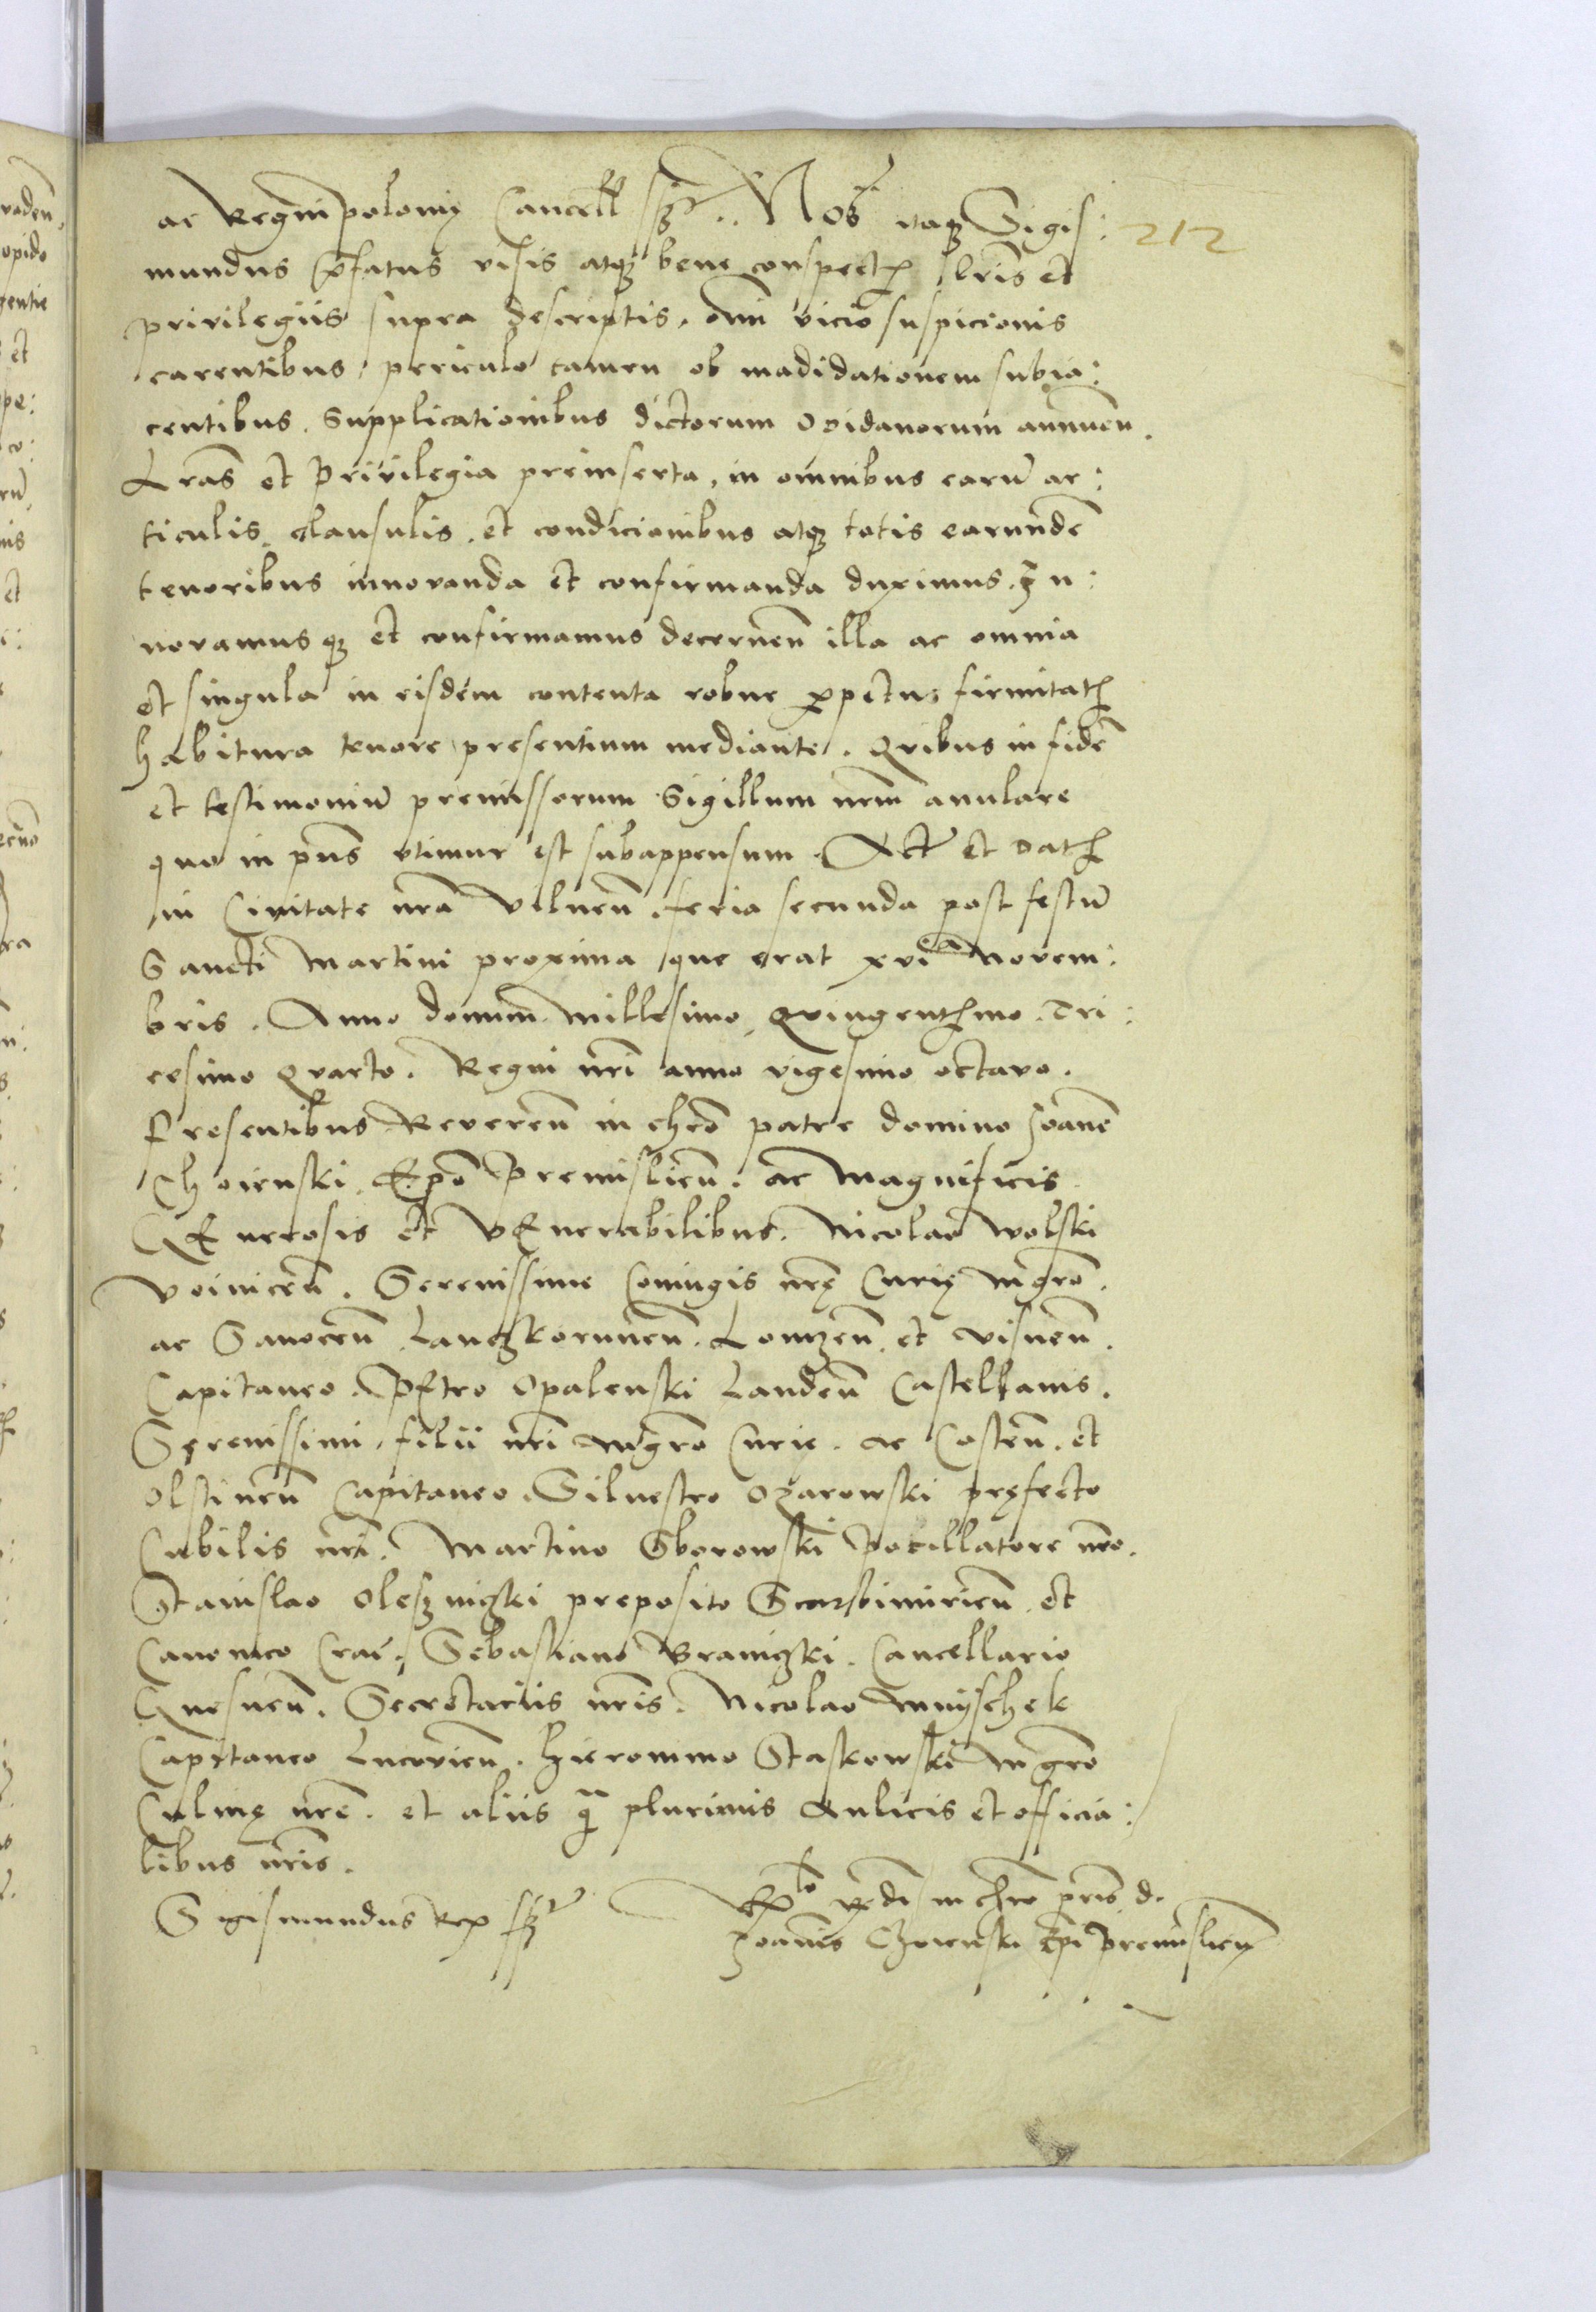 ac Regni polonię Cancell sszt. Nos itaqꝫ Sigis:
212
mundus p̄fatus visis atqꝫ bene conspectis lr̄is et
privilegiis supra descriptis, om̄i vicio suspicionis
carentibus, periculo tamen ob madidationem subia:
centibus. Supplicationibus dictorum Opidanorum annuen̄.
Lr̄as et Privilegia preinserta, in omnibus earū ar:
ticulis, clausulis, et condicionibus atqꝫ totis earundē
tenoribus innovanda et confirmanda duximus. In:
novamusqꝫ et confirmamus decernen̄ illa ac omnia
et singula in eisdem contenta robur ꝑpetuę firmitatis
habitura tenore presentium mediante. Quibus in fidē
et testimoniū premissorum Sigillum nr̄m anulare
quo in pn̄s utimur est subappensum. Actū et Datū
in Civitate nr̄a Vilnen̄. feria secunda post festū
Sancti Martini proxima que erat xvi Novem:
bris. Anno domini Millesimo Quingentesimo Tri:
cesimo Quarto. Regni nr̄i anno vigesimo octavo.
Presentibus Reveren̄ in chr̄o patre domino Joanne
Choienski Ep̄o Premislien̄. ac Magnificis
GEnerosis et VEnerabilibus. Nicolao Wolski
Voinicen̄. Serenissime Coniugis nr̄ę Curię Mgr̄o.
ac Sanocen̄ Lanczkorunen̄. Lomzen̄. et Visnen̄.
Capitaneo. PEtro Opalenski Landen̄ Castellanis.
Serenissimi filii nr̄i Mgr̄o Curię. ac Costen̄. et
Olstinen̄ Capitaneo. Silvestro Ozarowski pręfecto
Cubilis nr̄i. Martino Sborowski Pocillatore nr̄o.
Stanislao Oleschniczki preposito Scarbimirien̄. et
Canonico Crac̄. Sebastiano Braniczki. Cancellario
Gnesnen̄. Secretariis nr̄is. Nicolao Mnyschek
Capitaneo Lucovien̄. Hieronimo Staskowski Mgr̄o
Culinę nr̄ę. et aliis qm̄ plurimis Aulicis et officia:
libus nr̄is.
Sigismundus Rex sszt
Relo Rdi in chr̄o pr̄is d.
Joannis Choienski Ep̄i Premislien̄